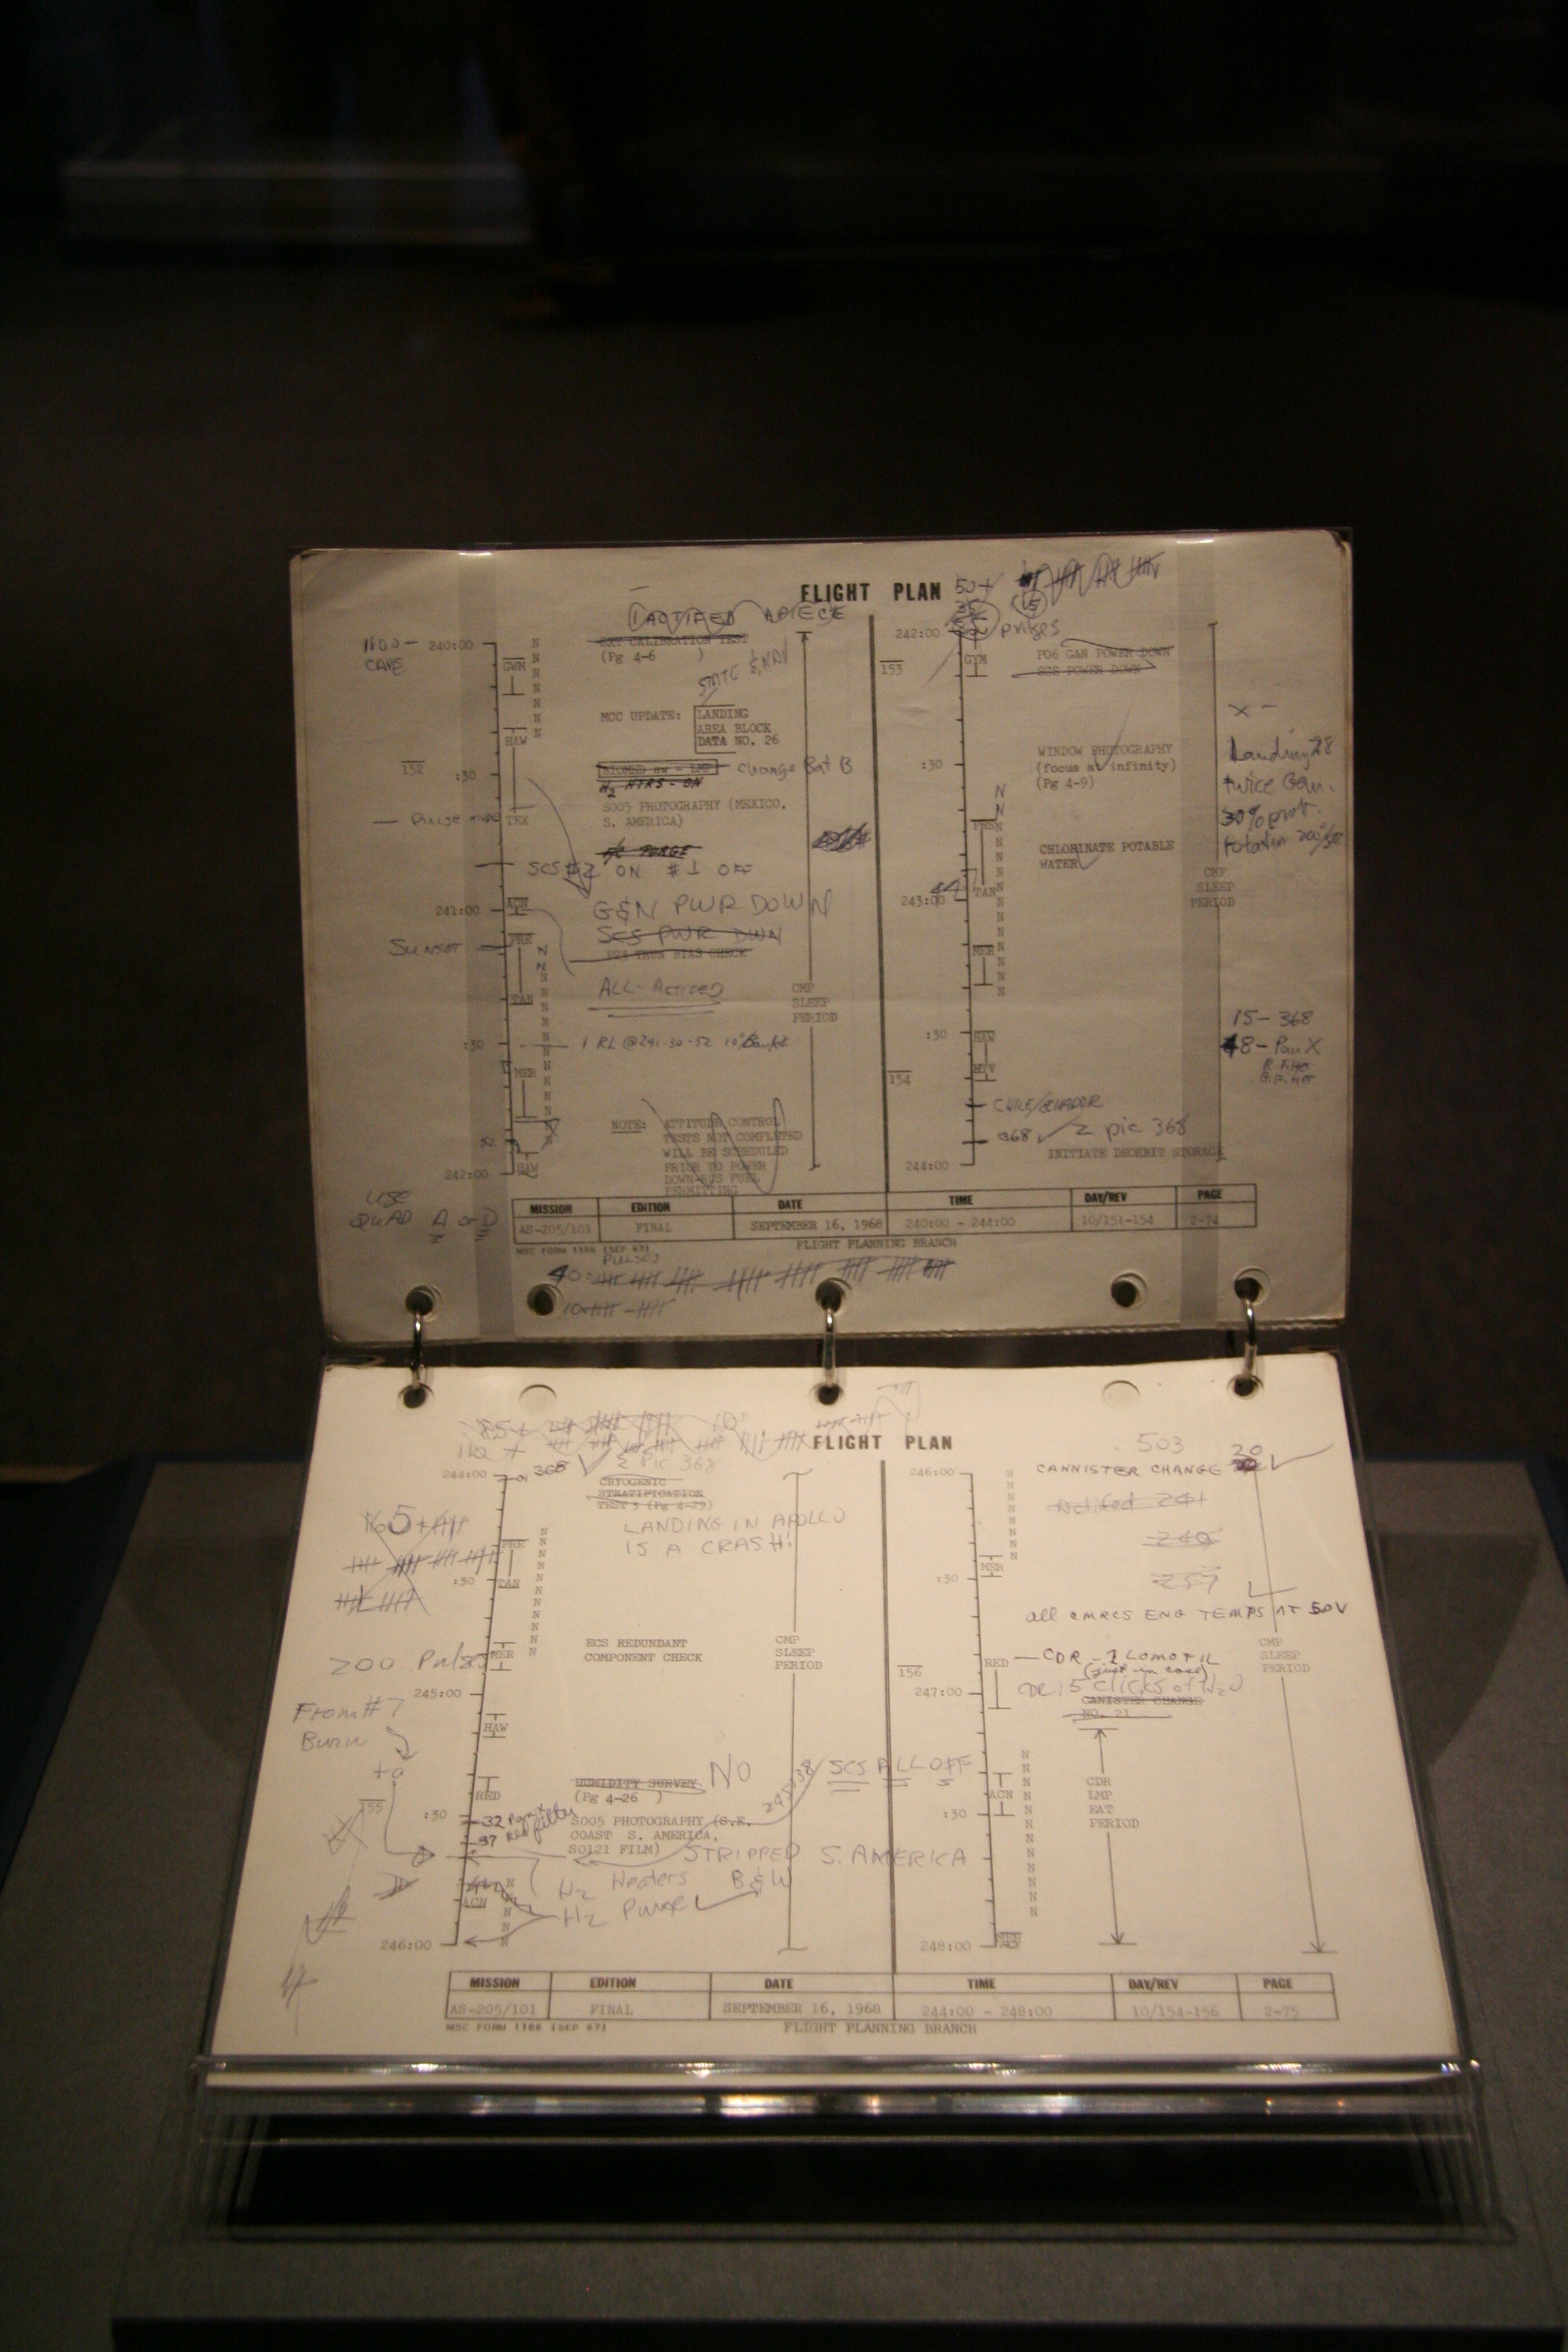 FLIGHT PLAN
50+
1 ACTIFED APIECE
1100 - CAPE
240:00
GWM
OXY CALIBRATION TEST
(Pg 4-6 )
STATE & NAV
MCC UPDATE: LANDING
AREA BLOCK
DATA NO. 26
HAW
152
:30
change Bat B
H2 HTRS - ON
S005 PHOTOGRAPHY (MEXICO,
S. AMERICA)
Pulse mode
TEX
F/C PURGE
SCS #2 ON #1 OFF
241:00
ACN
G&N PWR DOWN
SCS PWR DWN
SUNSET
PRE
P23 TRUN BIAS CHECK
TAN
ALL-Actifed
CMP
SLEEP
PERIOD
:30
MER
NOTE: ATTITUDE CONTROL
TESTS NOT COMPLETED
WILL BE SCHEDULED
PRIOR TO POWER
DOWN-RCS FUEL
PERMITTING
52
242:00
HAW
USE
QUAD A or D
242:00
pulses
153
GYM
P06 G&N POWER DOWN
SCS POWER DOWN
WINDOW PHOTOGRAPHY
(focus at infinity)
(Pg 4-9)
:30
PRE
CHLORINATE POTABLE
WATER
TAN
243:00
44
MER
CMP
SLEEP
PERIOD
:30
HAW
HTV
154
CHILE/ECUADOR
368 ✓ 2 pic 368
INITIATE DEORBIT STORAGE
244:00
X -
Landing 28
twice Gem.
30% prob.
15 - 368
48 - Pan X
MISSION EDITION DATE TIME DAY/REV PAGE
AS-205/101 FINAL SEPTEMBER 16, 1968 240:00 - 244:00 10/151-154 2-74
MSC FORM 1186 (SEP 67) FLIGHT PLANNING BRANCH
PULSES
40:
10:
FLIGHT PLAN
110 +
244:00
01 368 ✓ 2 Pic 368
CRYOGENIC
STRATIFICATION
TEST 3 (Pg 4-29)
LANDING IN APOLLO
IS A CRASH!
PRE
:30
TAN
MER
200 Pulses
ECS REDUNDANT
COMPONENT CHECK
CMP
SLEEP
PERIOD
245:00
From #7
Burn
to
HAW
HUMIDITY SURVEY NO
(Pg 4-26 )
RED
155
:30
32 Pan X
37 Red filter
S005 PHOTOGRAPHY (S.E.
COAST S. AMERICA,
SO121 FILM)
STRIPPED S. AMERICA
H2 Heaters B&W
H2 Purge ✓
ACN
246:00
503
246:00
CANNISTER CHANGE 20 ✓
Actifed 241
240
257
MER
:30
all CMRCS ENG TEMPS AT 50V
CMP
SLEEP
PERIOD
156
RED
CDR - 1 LOMOTIL
(just in case)
CDR 15 clicks of H2O
247:00
CANISTER CHANGE
NO. 21
245:38
SCS ALL OFF
ACN
:30
CDR
LMP
EAT
PERIOD
248:00
MER
MISSION EDITION DATE TIME DAY/REV PAGE
AS-205/101 FINAL SEPTEMBER 16, 1968 244:00 - 248:00 10/154-156 2-75
MSC FORM 1186 (SEP 67) FLIGHT PLANNING BRANCH